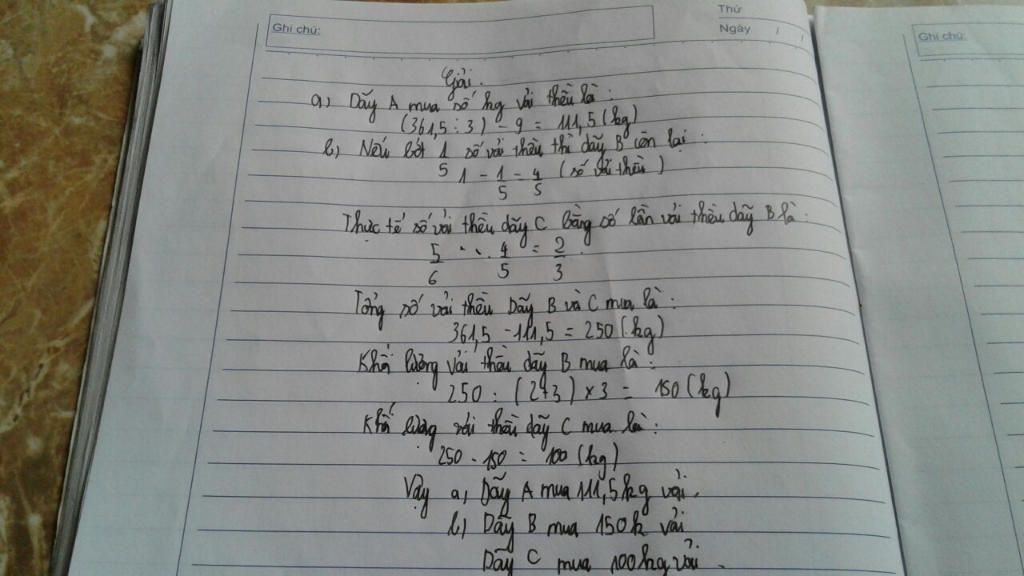 Thứ
Ghi chú:
Ngày / /
Ghi chú:
Giải.
a, Dãy A mua số kg vải thều là :
(361,5 : 3) - 9 = 111,5 (kg)
b, Nếu bớt 1/5 số vải thều thì dãy B còn lại :
1 - 1/5 = 4/5 (số vải thều)
Thực tế số vải thều dãy C bằng số lần vải thều dãy B là :
5/6 . 4/5 = 2/3 .
Tổng số vải thều Dãy B và C mua là :
361,5 - 111,5 = 250 (kg)
Khối lượng vải thều dãy B mua là :
250 : (2+3) x 3 = 150 (kg)
Khối lượng vải thều dãy C mua là :
250 - 150 = 100 (kg)
Vậy a, Dãy A mua 111,5 kg vải .
b, Dãy B mua 150k vải
Dãy C mua 100kg vải .